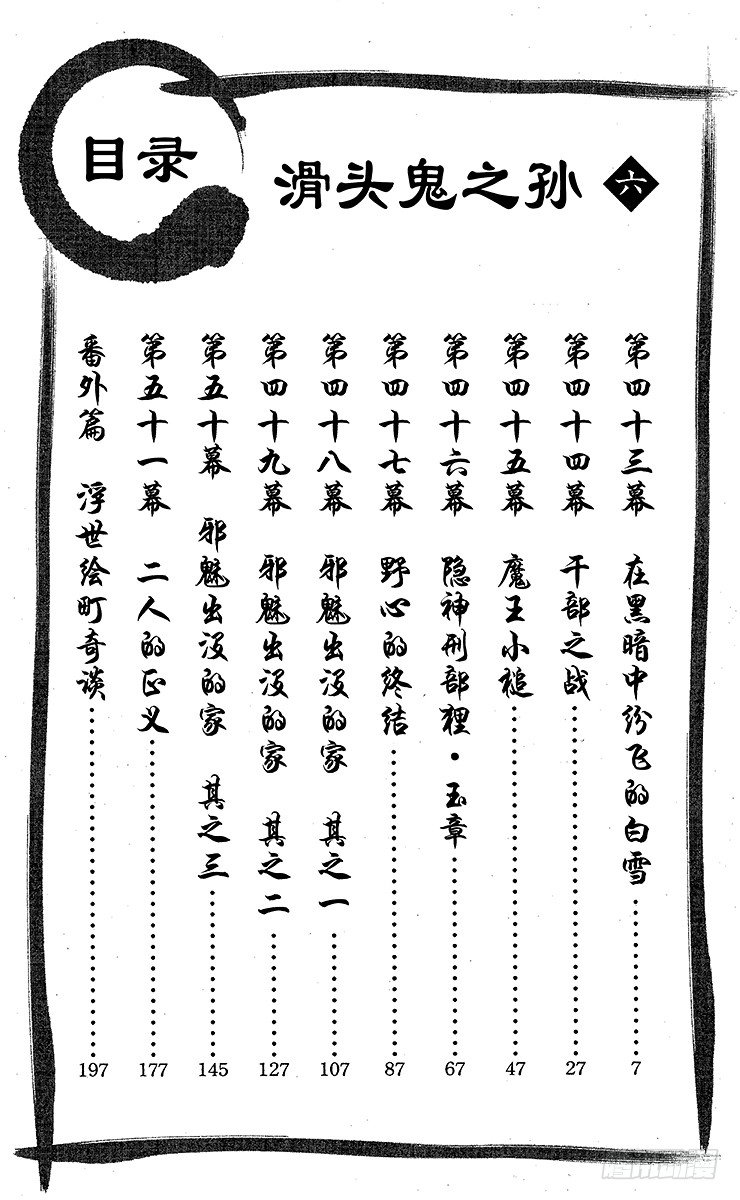 目录
滑头鬼之孙 六
第四十三幕 在黑暗中纷飞的白雪……7
第四十四幕 干部之战……27
第四十五幕 魔王小槌……47
第四十六幕 隐神刑部狸・玉章……67
第四十七幕 野心的终结……87
第四十八幕 邪魅出没的家 其之一……107
第四十九幕 邪魅出没的家 其之二……127
第五十幕 邪魅出没的家 其之三……145
第五十一幕 二人的正义……177
番外篇 浮世绘町奇谈……197